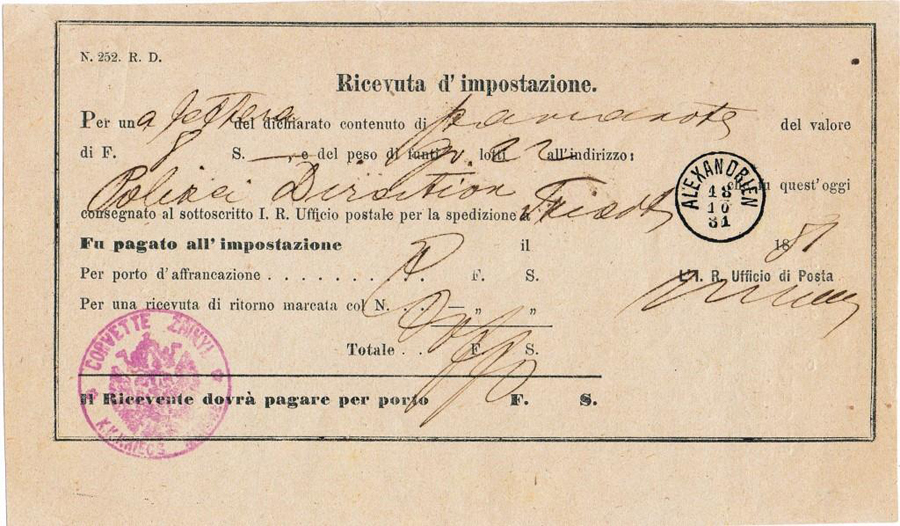 N. 252. R. D.
Ricevuta d'impostazione.
Per una lettera del dichiarato contenuto di del valore
di F. 8 S. — e del peso di funti lotti 22 all'indirizzo:
Polizei Direction Triest che fu quest'oggi
consegnato al sottoscritto I. R. Ufficio postale per la spedizione
ALEXANDRIEN
18
10
81
Fu pagato all'impostazione il 1881
Per porto d'affrancazione . . . . . . . F. S. L'I. R. Ufficio di Posta
Per una ricevuta di ritorno marcata col N. . . — „ „
Totale . . F. S.
Il Ricevente dovrà pagare per porto F. S.
CORVETTE ZRINYI